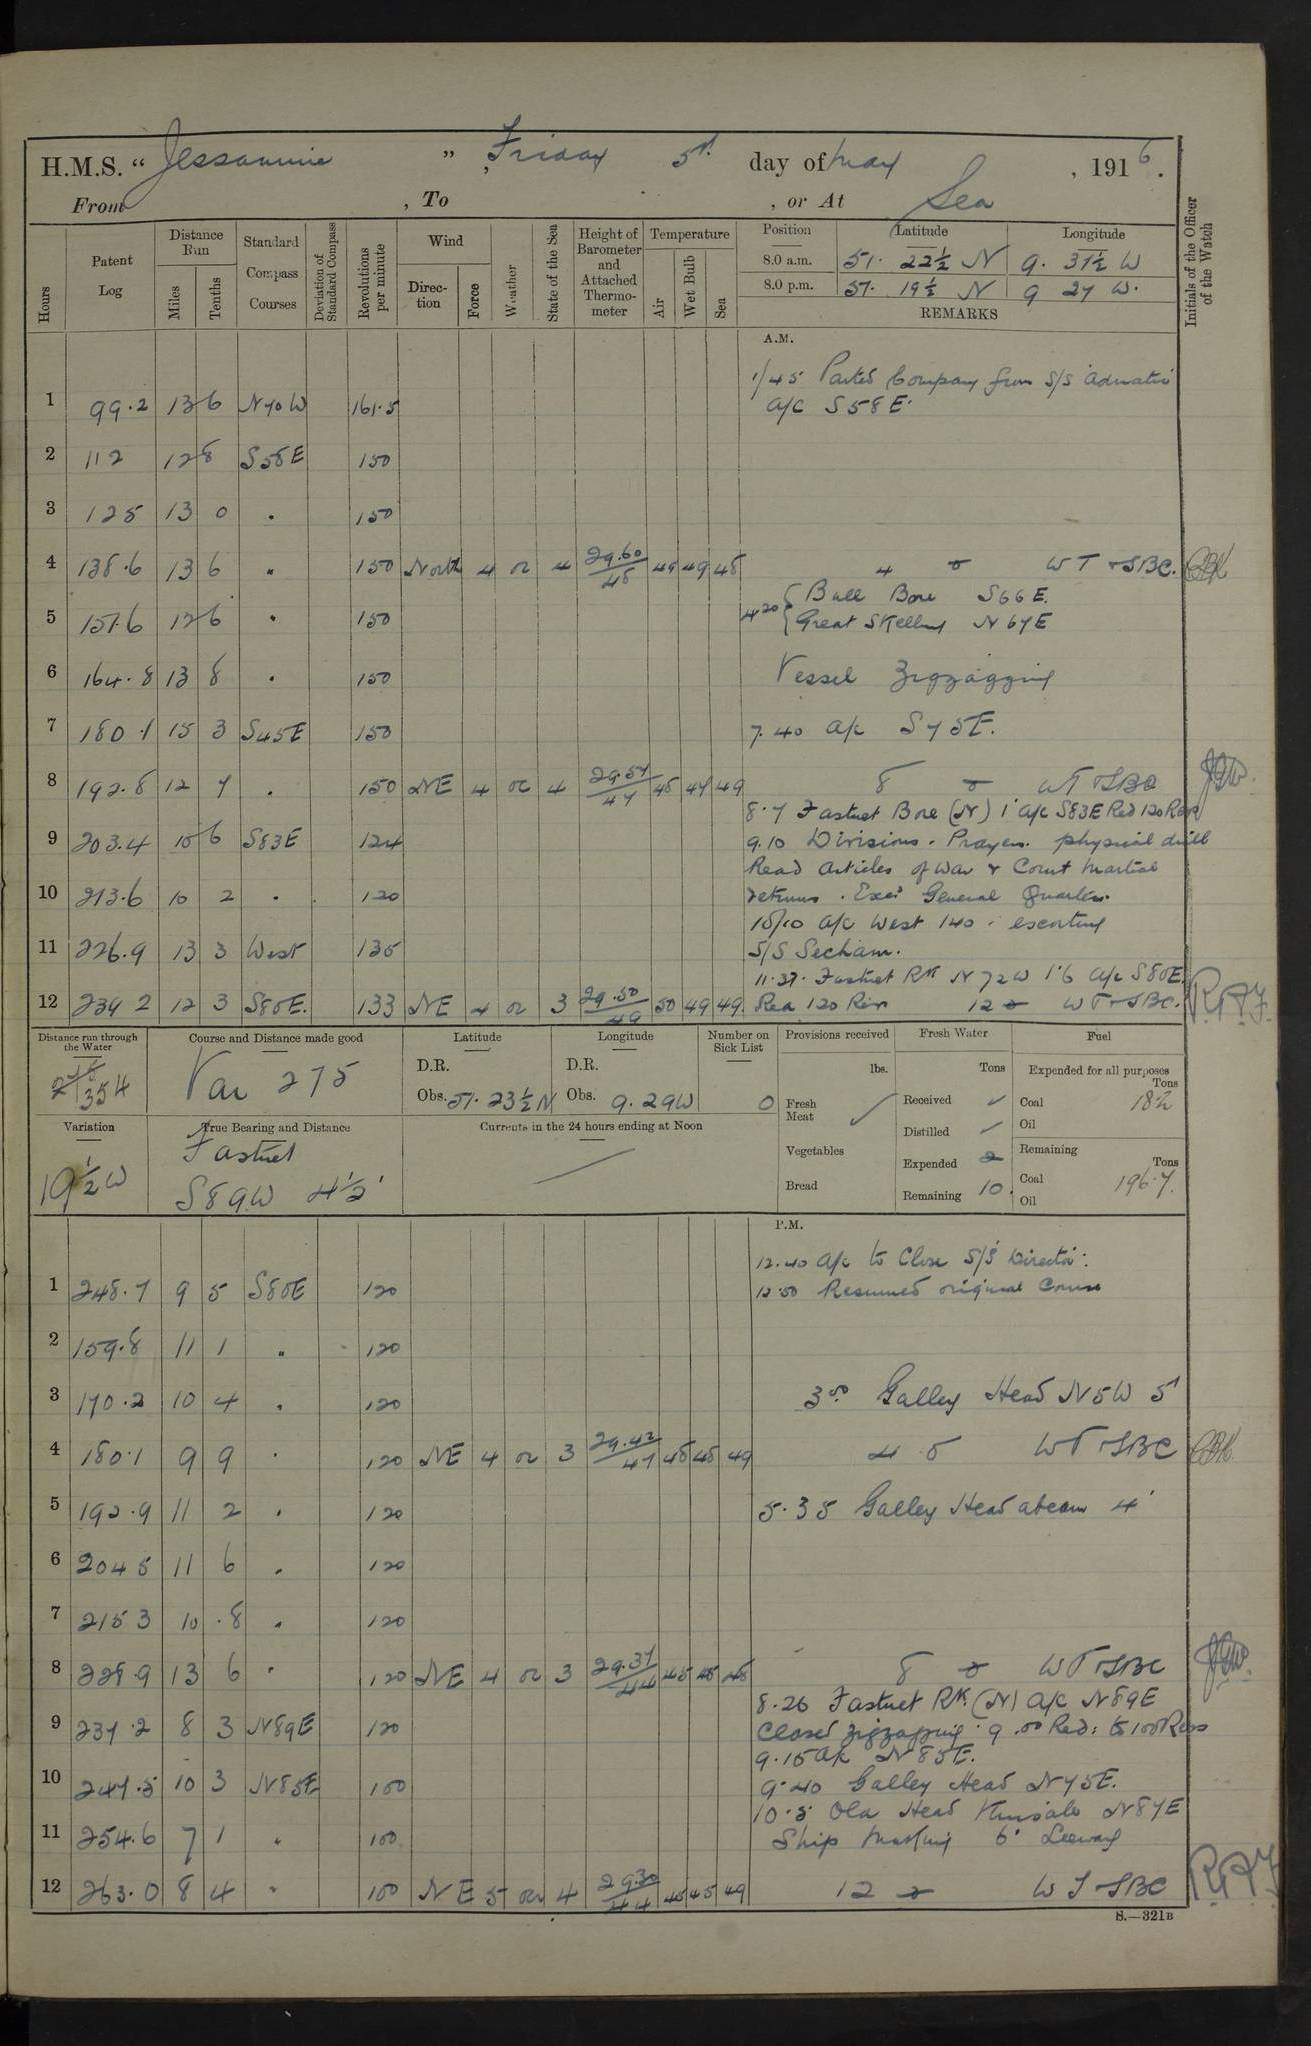 H.M.S. “ Jessamine ”, Friday 5th day of May, 1916.
From , To , or At Sea
Hours
Patent Log
Distance Run
Miles
Tenths
Standard Compass Courses
Deviation of Standard Compass
Revolutions per minute
Wind
Direction
Force
Weather
State of the Sea
Height of Barometer and Attached Thermometer
Temperature
Air
Wet Bulb
Sea
Position Latitude Longitude
8.0 a.m. 51. 22½ N 9. 31½ W
8.0 p.m. 51. 19½ N 9 27 W.
REMARKS
Initials of the Officer of the Watch
A.M.
1/45 Parted Company from S/S
1 99.2 13 6 N70W 161.5 a/c S58E.
2 112 12 8 S58E 150
3 125 13 0 " 150
4 138.6 13 6 " 150 North 4 oc 4 29.60/48 49 49 48 4 o WT & SBC.
4.20 { Bull Bore S66E.
5 151.6 12 6 " 150 Great Skellig N67E
6 164.8 13 8 " 150 Vessel Zigzagging
7 180.1 15 3 S45E 150 7.40 a/c S75E.
8 192.8 12 7 . 150 NE 4 oc 4 29.54/47 48 47 49 8 o WT & SBC
8.7 Fastnet Bore (N) 1' a/c S83E Red 120 Revs
9 203.4 10 6 S83E 124 9.10 Divisions. Prayers. physical drill
Read Articles of War & Court Martial
10 213.6 10 2 . 120 returns. Exer General Quarters.
10/10 a/c West 140. escorting
11 226.9 13 3 West 135 S/S
11.37. Fastnet Rk N72W 1'.6 a/c S80E.
12 239 2 12 3 S80E. 133 NE 4 oc 3 29.50/49 50 49 49. Red 120 Rev 12 o WT & SBC. R.A.F.
Distance run through the Water
354
Course and Distance made good
Var 275
Latitude
D.R.
Obs. 51. 23½ N
Longitude
D.R.
Obs. 9. 29 W
Number on Sick List
0
Provisions received
lbs.
Fresh Meat
Vegetables
Bread
Fresh Water
Tons
Received
Distilled
Expended 2
Remaining 10.
Fuel
Expended for all purposes
Tons
Coal 18.2
Oil
Remaining
Tons
Coal 196.7.
Oil
Variation
19½ W
True Bearing and Distance
Fastnet
S89W 4½'
Currents in the 24 hours ending at Noon
P.M.
12.40 a/c to Close S/S
1 248.7 9 5 S80E 120 12.50 Resumed original Course
2 159.8 11 1 " 120
3 170.2 10 4 . 120 3.00 Galley Head N5W 5'
4 180.1 9 9 . 120 NE 4 oc 3 29.42/47 48 48 49 4.0 WT & SBC
5 192.9 11 2 . 120 5.35 Galley Head abeam 4'
6 204 5 11 6 . 120
7 215 3 10 .8 . 120
8 13 6 . 120 NE 4 oc 3 29.37/44 45 45 48 8 o WT & SBC
8.26 Fastnet Rk. (N) a/c N89E
9 237.2 8 3 N89E 120 Ceased zigzagging. 9.00 Red: to 100 Revs
9.15 a/c N85E.
10 247.5 10 3 N85E 100 9.40 Galley Head N75E.
10.5 Old Head Kinsale N87E
11 254.6 7 1 " 100 Ship making 6° Leeway
12 263.0 8 4 " 100 NE 5 oc 4 29.30/44 45 45 49 12 o WT & SBC R.A.F.
S.—321B